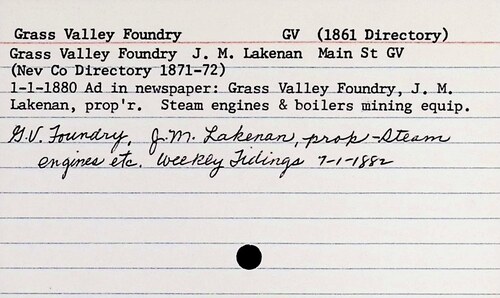 Grass Valley Foundry GV (1861 Directory)
Grass Valley Foundry J. M. Lakenan Main St GV
(Nev Co Directory 1871-72)
1-1-1880 Ad in newspaper: Grass Valley Foundry, J. M.
Lakenan, prop'r. Steam engines & boilers mining equip.
G.V. Foundry, J.M. Lakenan, prop - Steam
engines etc. Weekly Tidings 7-1-1882